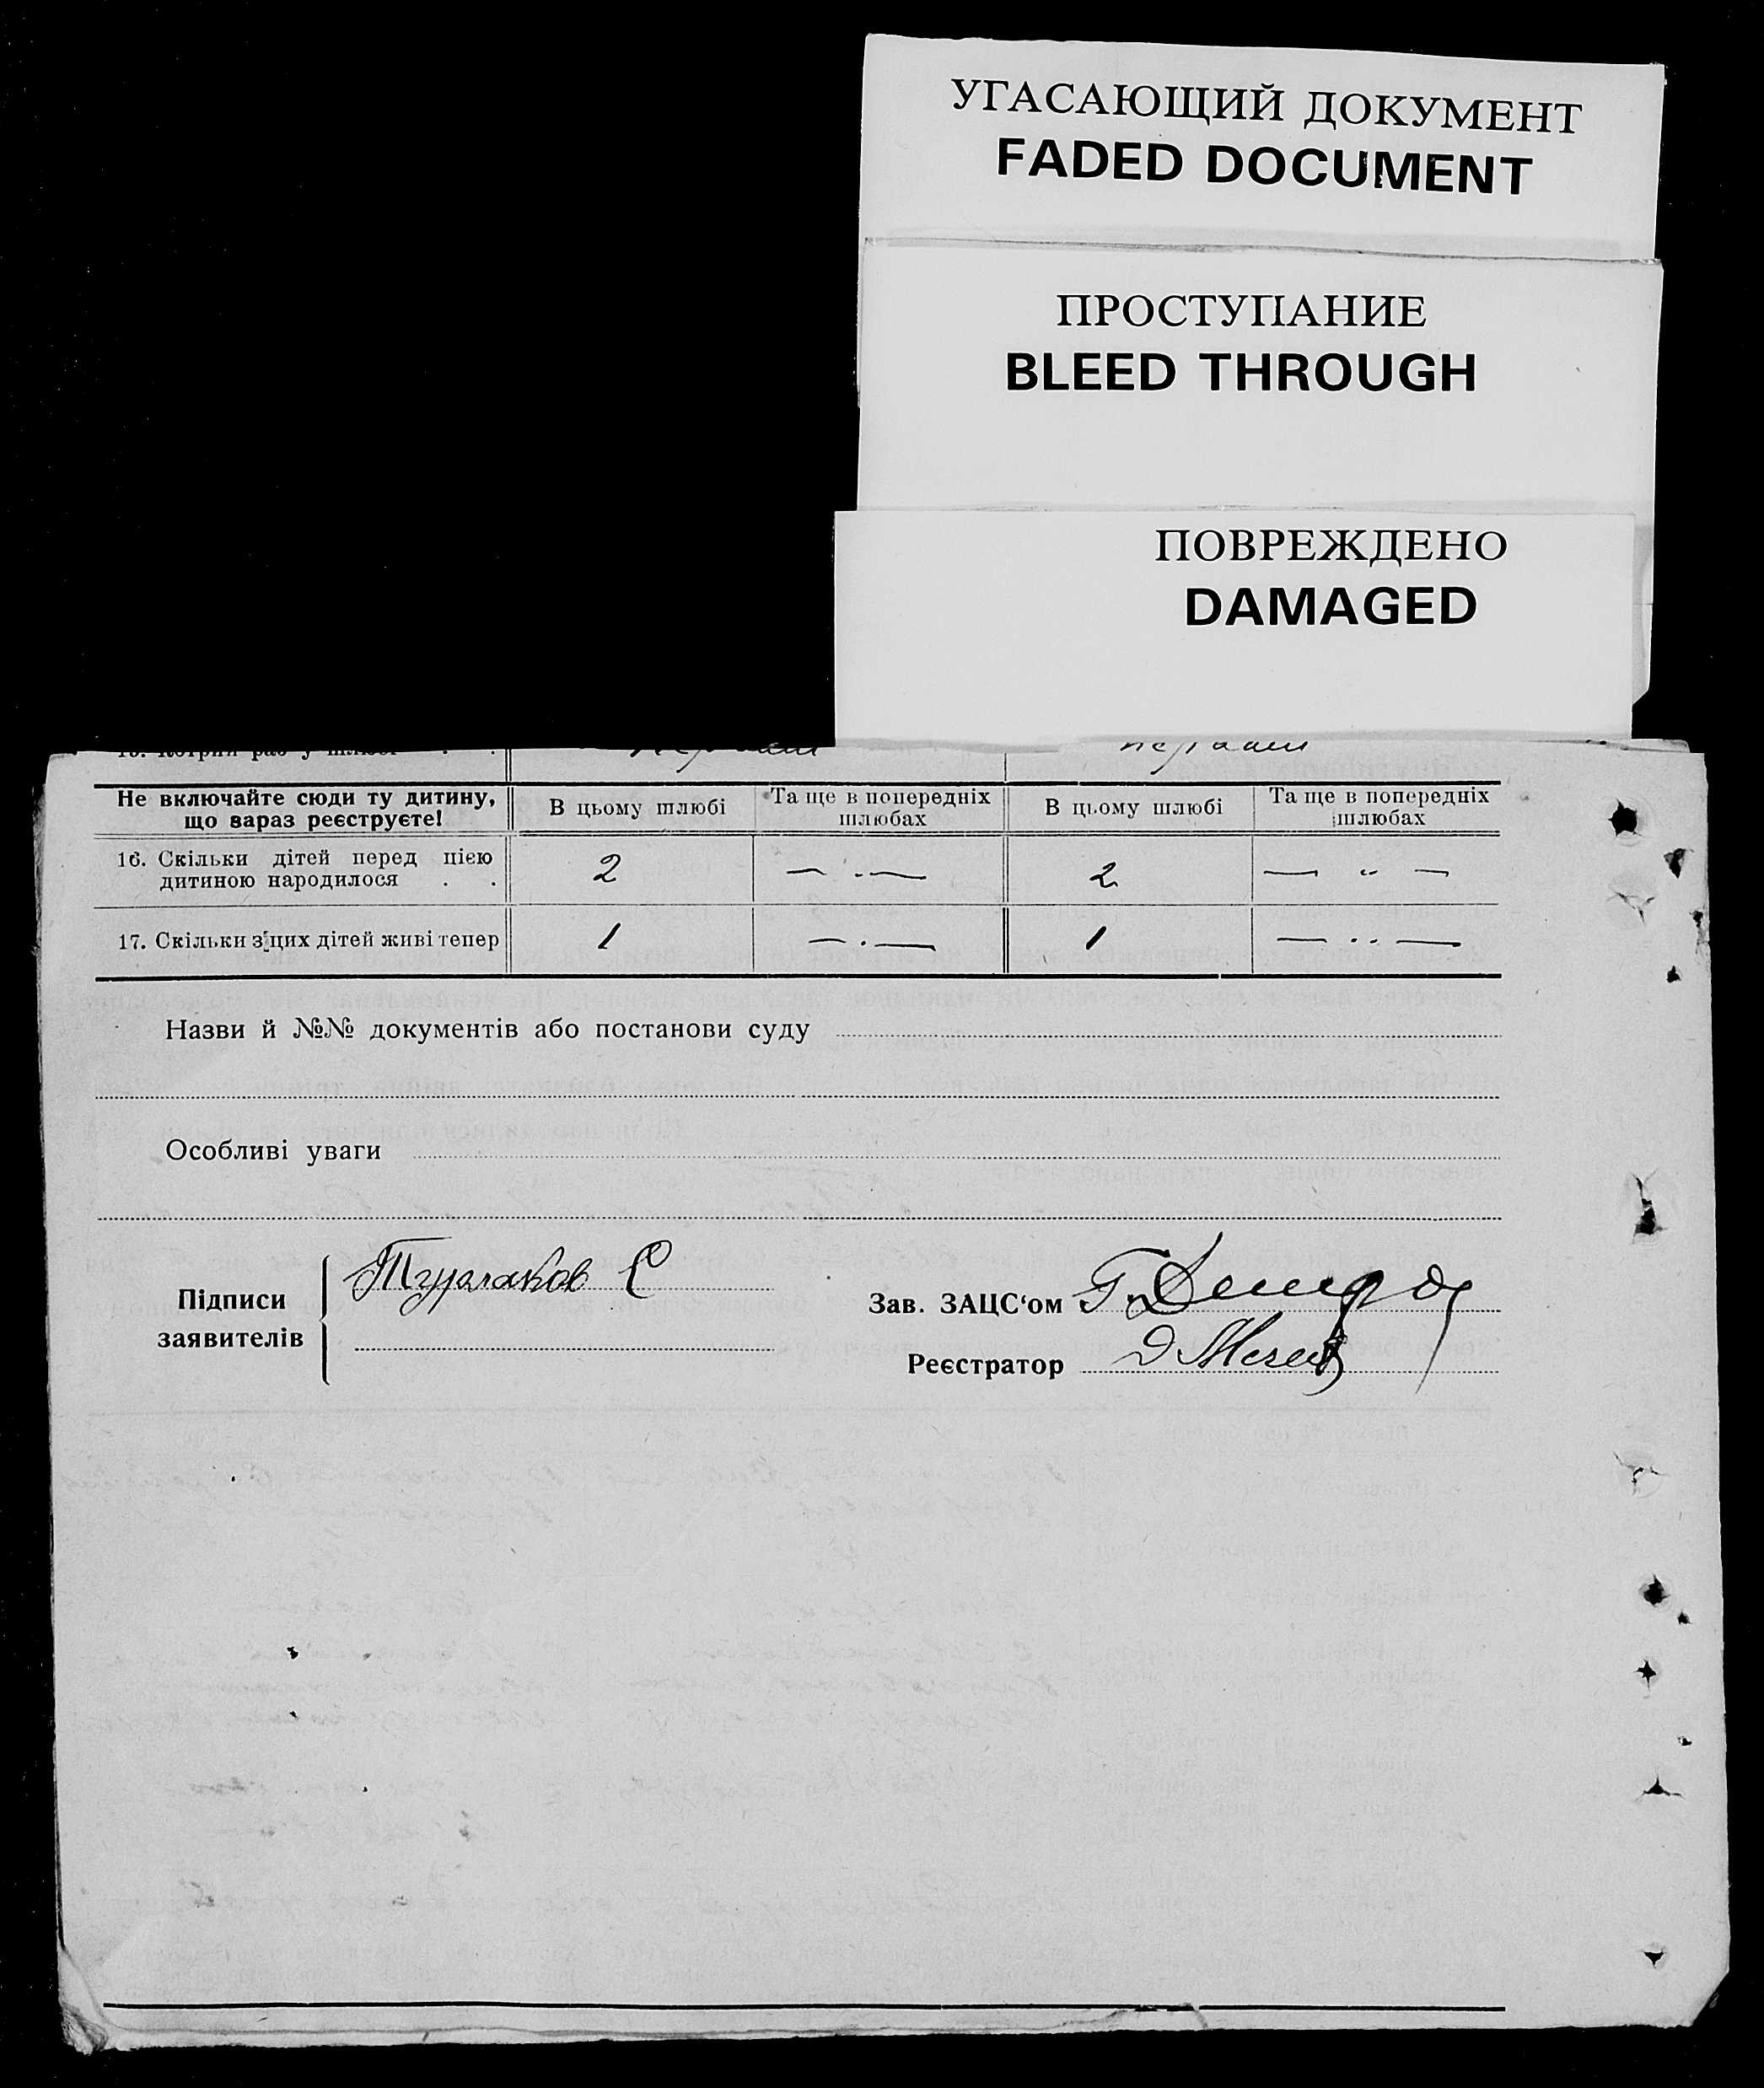 УГАСАЮЩИЙ ДОКУМЕНТ
FADED DOCUMENT
ПРОСТУПАНИЕ
BLEED THROUGH
ПОВРЕЖДЕНО
DAMAGED
Не включайте сюди ту дитину, що вараз реєструєте! В цьому шлюбі Та ще в попередніх шлюбах В цьому шлюбі Та ще в попередніх шлюбах
16. Скільки дітей перед цією дитиною народилося . . 2 — · — 2 — ·· —
17. Скільки з цих дітей живі тепер 1 — · — 1 — ·· —
Назви й №№ документів або постанови суду
Особливі уваги
Підписи заявителів
Зав. ЗАЦС‘ом
Реєстратор